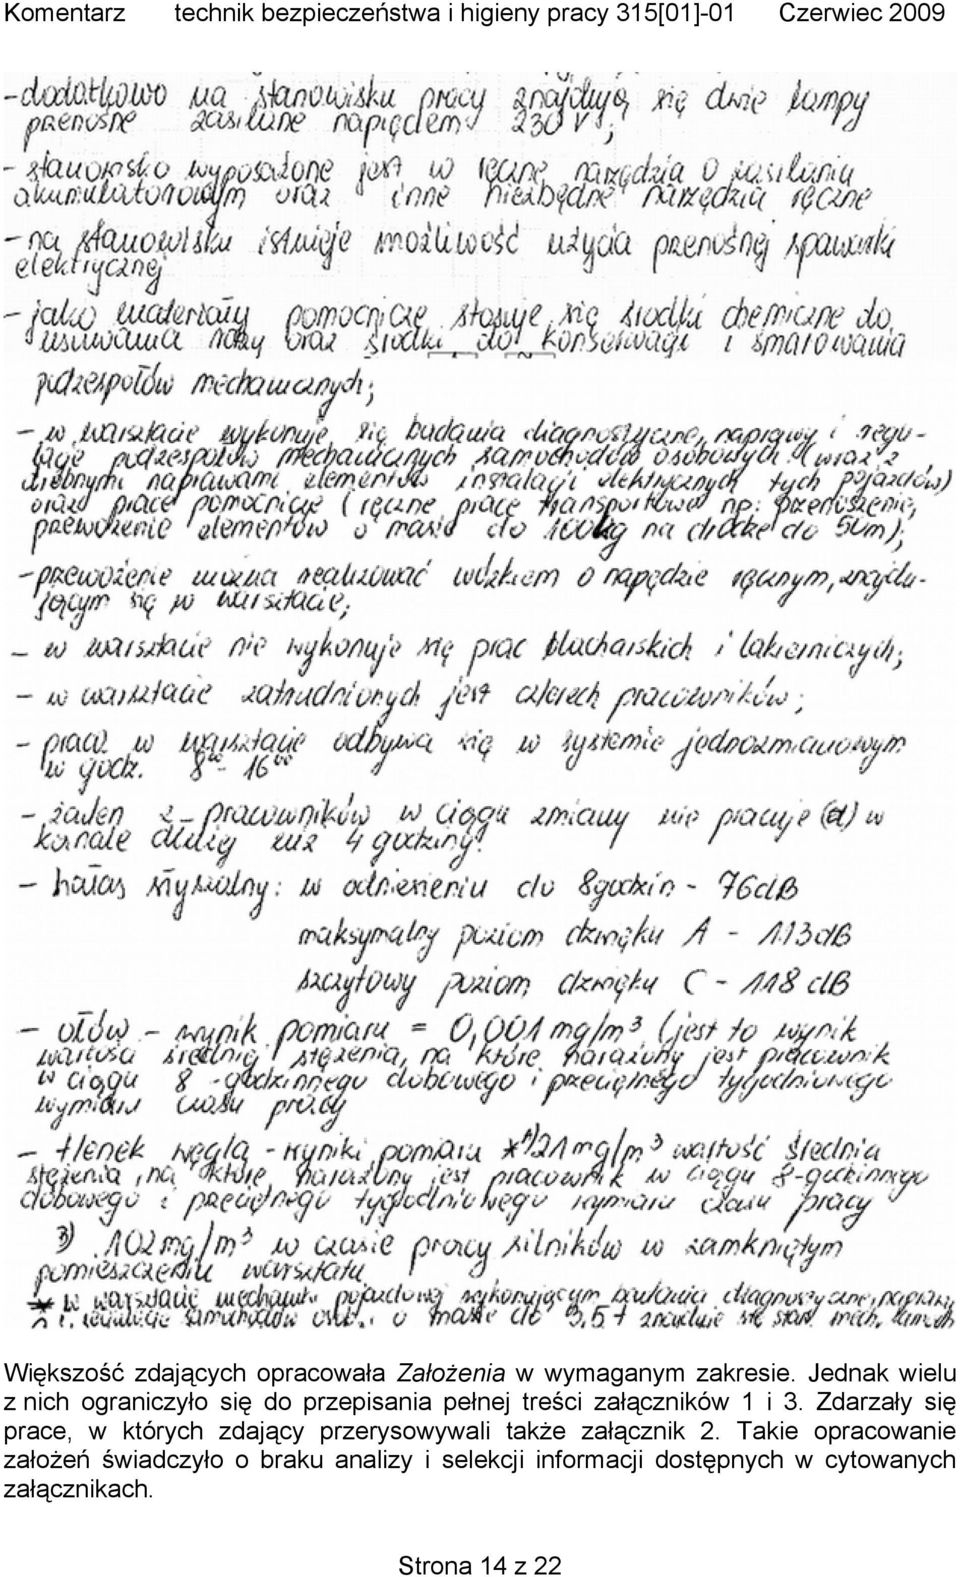 Komentarz technik bezpieczeństwa i higieny pracy 315[01]-01 Czerwiec 2009
- dodatkowo na stanowisku pracy znajdują się dwie lampy
przenośne zasilane napięciem 230 V;
- stanowisko wyposażone jest w ręczne narzędzia o zasilaniu
akumulatorowym oraz inne niezbędne narzędzia ręczne
- na stanowisku istnieje możliwość użycia przenośnej spawarki
elektrycznej
- jako materiały pomocnicze stosuje się środki chemiczne do
usuwania rdzy oraz środki do konserwacji i smarowania
podzespołów mechanicznych;
- w warsztacie wykonuje się badania diagnostyczne, naprawy i regu-
lacje podzespołów mechanicznych samochodów osobowych (wraz z
drobnymi naprawami elementów instalacji elektrycznych tych pojazdów)
oraz prace pomocnicze (ręczne prace transportowe np: przenoszenie,
przewożenie elementów o masie do 100kg na drodze do 50m);
- przewożenie można realizować wózkiem o napędzie ręcznym, znajdu-
jącym się w warsztacie;
- w warsztacie nie wykonuje się prac blacharskich i lakierniczych;
- w warsztacie zatrudnionych jest czterech pracowników;
- praca w warsztacie odbywa się w systemie jednozmianowym
w godz. 8⁰⁰ - 16⁰⁰
- żaden z pracowników w ciągu zmiany nie pracuje w
kanale dłużej niż 4 godziny!
- hałas słyszalny: w odniesieniu do 8 godzin - 76dB
maksymalny poziom dźwięku A - 113dB
szczytowy poziom dźwięku C - 118 dB
- ołów - wynik pomiaru = 0,001 mg/m³ (jest to wynik
wartości średniej stężenia, na które narażony jest pracownik
w ciągu 8-godzinnego dobowego i przeciętnego tygodniowego
wymiaru czasu pracy
- tlenek węgla - wyniki pomiaru 21 mg/m³ wartość średnia
stężenia, na które narażony jest pracownik w ciągu 8-godzinnego
dobowego i przeciętnego tygodniowego wymiaru czasu pracy
3) 102 mg/m³ w czasie pracy silników w zamkniętym
pomieszczeniu warsztatu
* w warsztacie mechaniki pojazdowej wykonującym badania diagnostyczne, naprawy
i regulacje samochodów osob. o masie do 3,5 t znajduje się stan. mech.
Większość zdających opracowała Założenia w wymaganym zakresie. Jednak wielu
z nich ograniczyło się do przepisania pełnej treści załączników 1 i 3. Zdarzały się
prace, w których zdający przerysowywali także załącznik 2. Takie opracowanie
założeń świadczyło o braku analizy i selekcji informacji dostępnych w cytowanych
załącznikach.
Strona 14 z 22